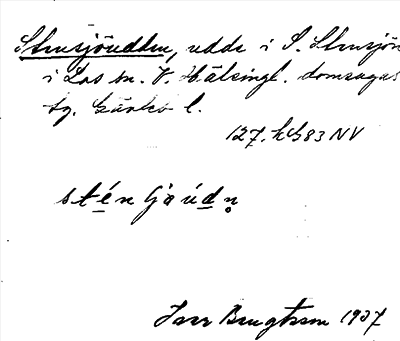 Stensjöudden, udde i S. Stensjön
i Los sn. V. Hälsingl. domsagas
tg. Gävleb l.
127. h G83 NV
sténʃøúdn̥
Ivar Bengtsson 1937